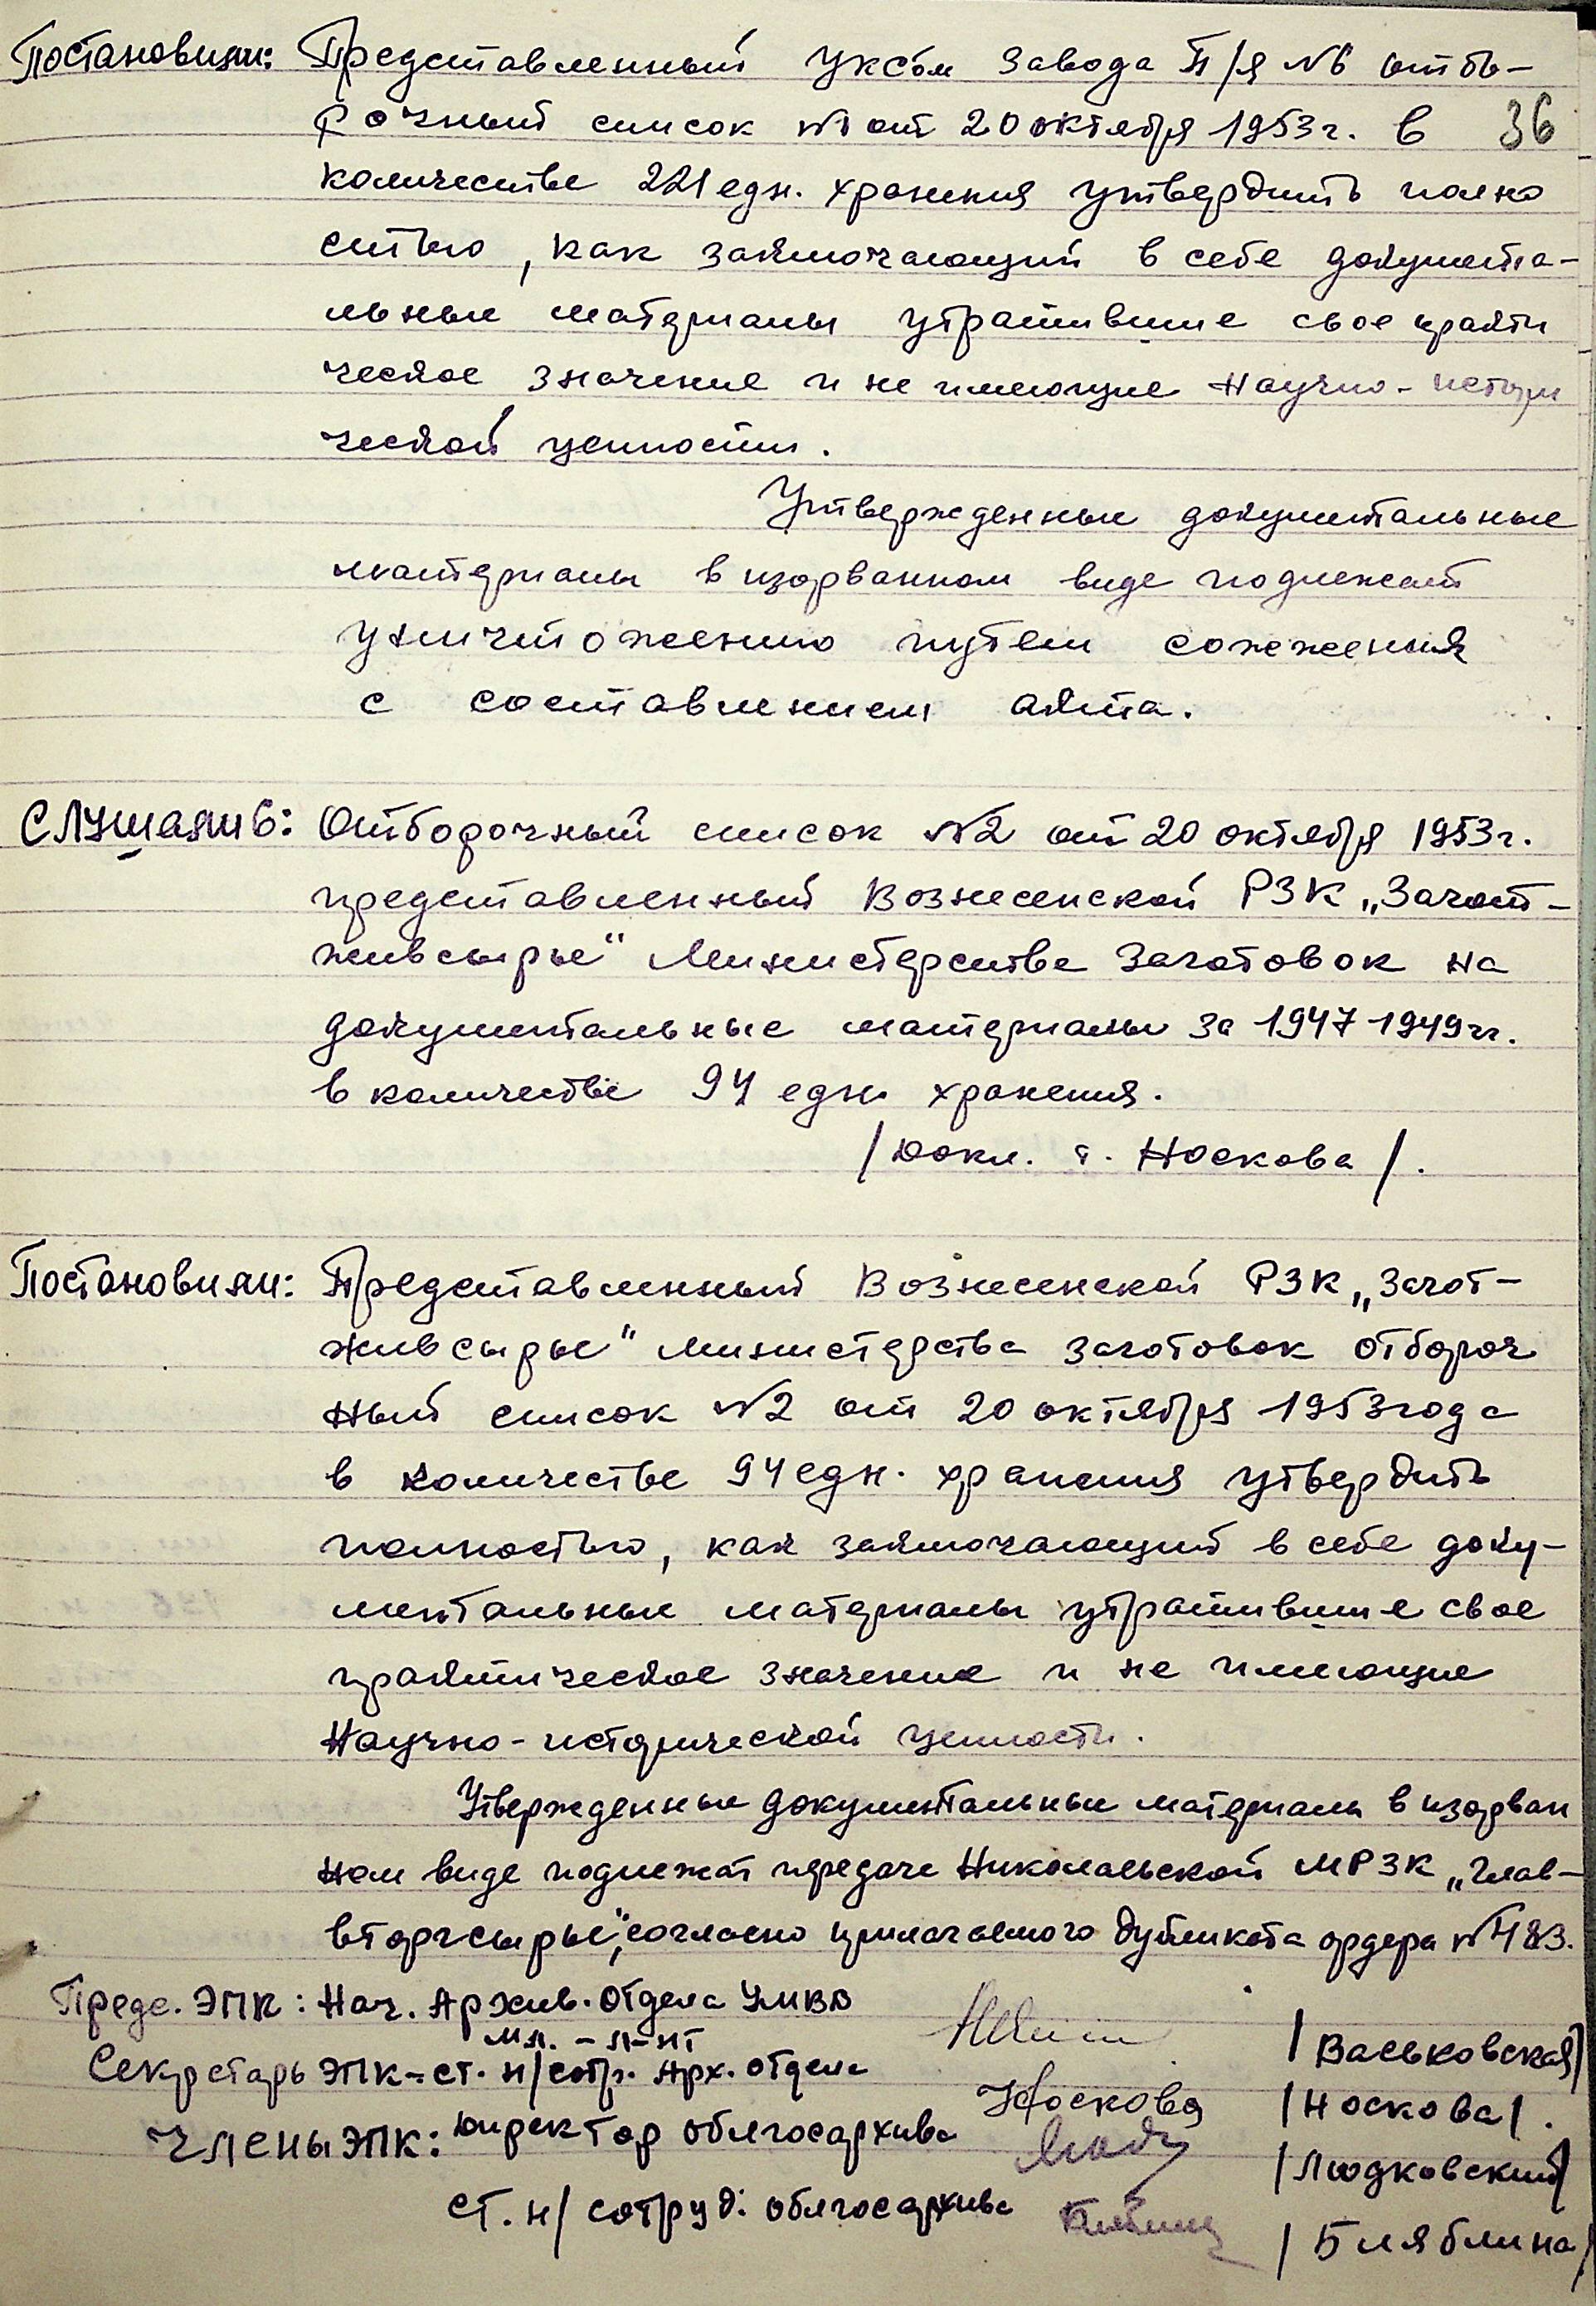 Постановили: Представленный УКСом Завода П/я №6 отбо-
рочный список №1 от 20 октября 1953г. в
36
количестве 221 едн. хранения утвердить полно
стью, как заключающий в себе документа-
льные материалы утратившие свое практи
ческое значение и не имеющие научно-истори
ческой ценности.
Утвержденные документальные
материалы в изорванном виде подлежат
уничтожению путем сожжения
с составлением акта.
Слушали 6: Отборочный список №2 от 20 октября 1953г.
представленный Вознесенской РЗК „Загот-
живсырье" Министерстве Заготовок на
документальные материалы за 1947 1949гг.
в количестве 94 едн хранения.
/Докл. т. Носкова/.
Постановили: Представленный Вознесенской РЗК „Загот-
живсырье" министерства заготовок отбороч
ный список №2 от 20 октября 1953 года
в количестве 94 едн. хранения утвердить
полностью, как заключающий в себе доку-
ментальные материалы утратившие свое
практическое значение и не имеющие
научно-исторической ценности.
Утвержденные документальные материалы в изорван
ном виде подлежат передаче Николаевской МРЗК „Глав-
вторсырье", согласно прилагаемого дубликата ордера №483.
Предс. ЭПК: Нач. Архив. Отдела УМВД
мл. - л-нт
/Васьковская/
Секретарь ЭПК-ст. н/сотр. Арх. отдела Носкова /Носкова/.
Члены ЭПК: Директор облгосархива /Людковский/
ст. н/сотруд: облгосархива /Бляблина/